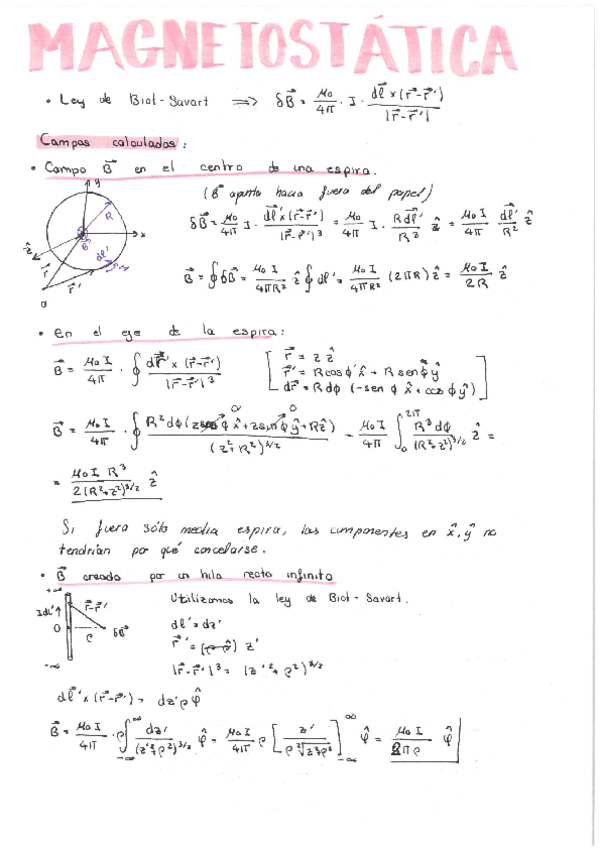 MAGNETOSTÁTICA
• Ley de Biot-Savart ⟹ δB⃗ = μ₀/4π · I · dl⃗' × (r⃗-r⃗')/|r⃗-r⃗'|
Campos calculados:
• Campo B⃗ en el centro de una espira.
(B⃗ apunta hacia fuera del papel)
y
R
x
ẑ
B⃗
dl⃗'
r⃗
r⃗'
0
δB⃗ = μ₀/4π I · dl⃗' × (r⃗-r⃗')/|r⃗-r⃗'|³ = μ₀/4π I · R dl⃗'/R³ ẑ = μ₀I/4π dl⃗'/R² ẑ
B⃗ = ∮ δB⃗ = μ₀I/4πR² ẑ ∮ dl' = μ₀I/4πR² (2πR) ẑ = μ₀I/2R ẑ
• En el eje de la espira:
B⃗ = μ₀I/4π · ∮ dr⃗' × (r⃗-r⃗')/|r⃗-r⃗'|³
r⃗ = z ẑ
r⃗' = R cos ϕ' x̂ + R sen ϕ ŷ
dr⃗ = R dϕ (-sen ϕ x̂ + cos ϕ ŷ)
B⃗ = μ₀I/4π · ∮ R²dϕ (z cos ϕ x̂ + z sin ϕ ŷ + Rẑ)/(z²+R²)^3/2 = μ₀I/4π ∫₀^2π R³dϕ/(R²+z²)^3/2 ẑ =
0 0
= μ₀I R³/2(R²+z²)^3/2 ẑ
Si fuera sólo media espira, las componentes en x̂, ŷ no
tendrían por qué cancelarse.
• B⃗ creado por un hilo recto infinito
+∞
Idl' ↑
r⃗-r⃗'
0
ρ
δB⃗
-∞
Utilizamos la ley de Biot-Savart.
dl' = dz'
r⃗' = z'
|r⃗-r⃗'|³ = (z'²+ρ²)^3/2
dl⃗' × (r⃗-r⃗') = dz' ρ φ̂
B⃗ = μ₀I/4π · ρ ∫_-∞^∞ dz'/(z'²+ρ²)^3/2 φ̂ = μ₀I/4π ρ [z'/ρ²√z²+ρ²]_-∞^∞ φ̂ = μ₀I/2πρ φ̂